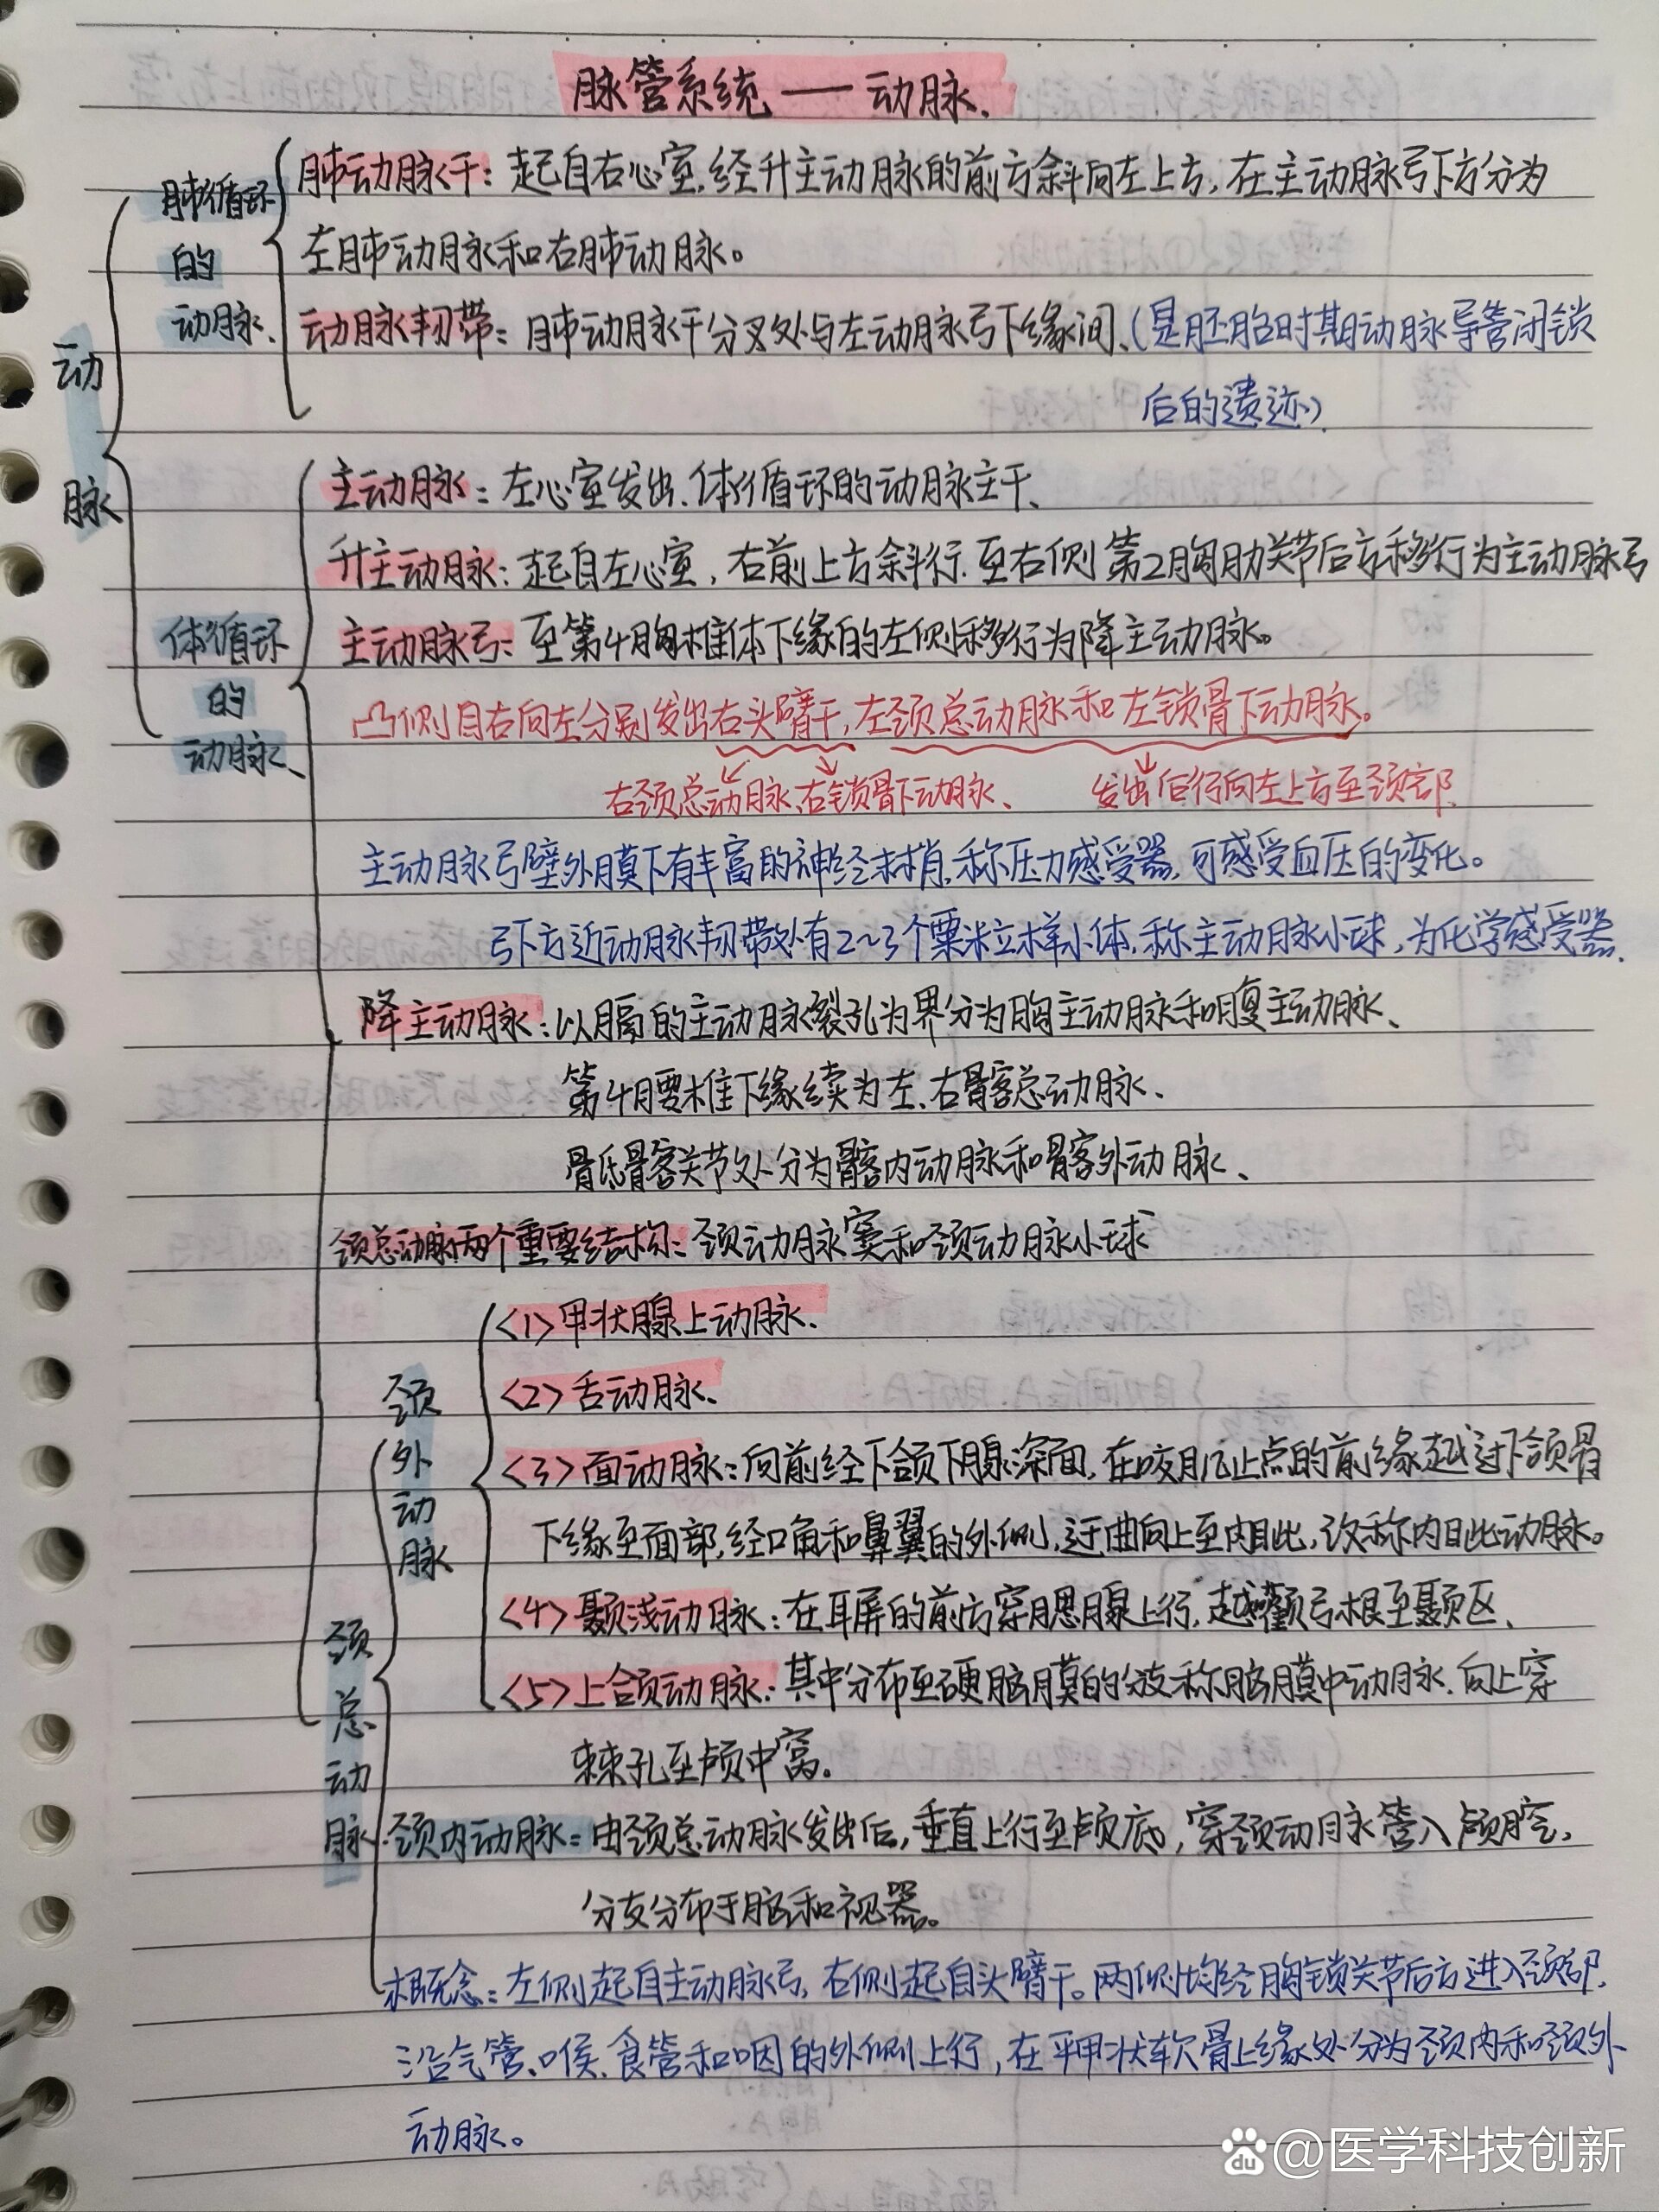 脉管系统——动脉.
肺循环的动脉、
肺动脉干:起自右心室,经升主动脉的前方斜向左上方,在主动脉弓下方分为
左肺动脉和右肺动脉。
动脉韧带:肺动脉干分叉处与左动脉弓下缘间、(是胚胎时期动脉导管闭锁
后的遗迹)
动脉
主动脉:左心室发出.体循环的动脉主干、
升主动脉:起自左心室,右前上方斜行.至右侧第2胸肋关节后方移行为主动脉弓
体循环的动脉、
主动脉弓:至第4胸椎体下缘的左侧移行为降主动脉。
凸侧自右向左分别发出右头臂干,左颈总动脉和左锁骨下动脉。
右颈总动脉、右锁骨下动脉、 发出后行向左上方至颈部.
主动脉弓壁外膜下有丰富的神经末梢,称压力感受器,可感受血压的变化。
弓下方近动脉韧带处有2~3个粟米粒样小体.称主动脉小球,为化学感受器.
降主动脉:以膈的主动脉裂孔为界分为胸主动脉和腹主动脉、
第4腰椎下缘续为左、右髂总动脉、
骨氐髂关节处分为髂内动脉和髂外动脉、
颈总动脉两个重要结构:颈动脉窦和颈动脉小球
颈外动脉
<1>甲状腺上动脉.
<2>舌动脉、
<3>面动脉:向前经下颌下腺深面,在咬肌止点的前缘越过下颌骨
下缘至面部,经口角和鼻翼的外侧,迂曲向上至内眦,改称内眦动脉。
<4>颞浅动脉:在耳屏的前方穿腮腺上行,越颧弓根至颞区、
<5>上颌动脉:其中分布至硬脑膜的分支称脑膜中动脉.向上穿
棘孔至颅中窝。
颈总动脉
颈内动脉:由颈总动脉发出后,垂直上行至颅底,穿颈动脉管入颅腔,
分支分布于脑和视器。
概念:左侧起自主动脉弓,右侧起自头臂干。两侧均经胸锁关节后方进入颈部.
沿气管、喉、食管和咽的外侧上行,在平甲状软骨上缘处分为颈内和颈外
动脉。
@医学科技创新